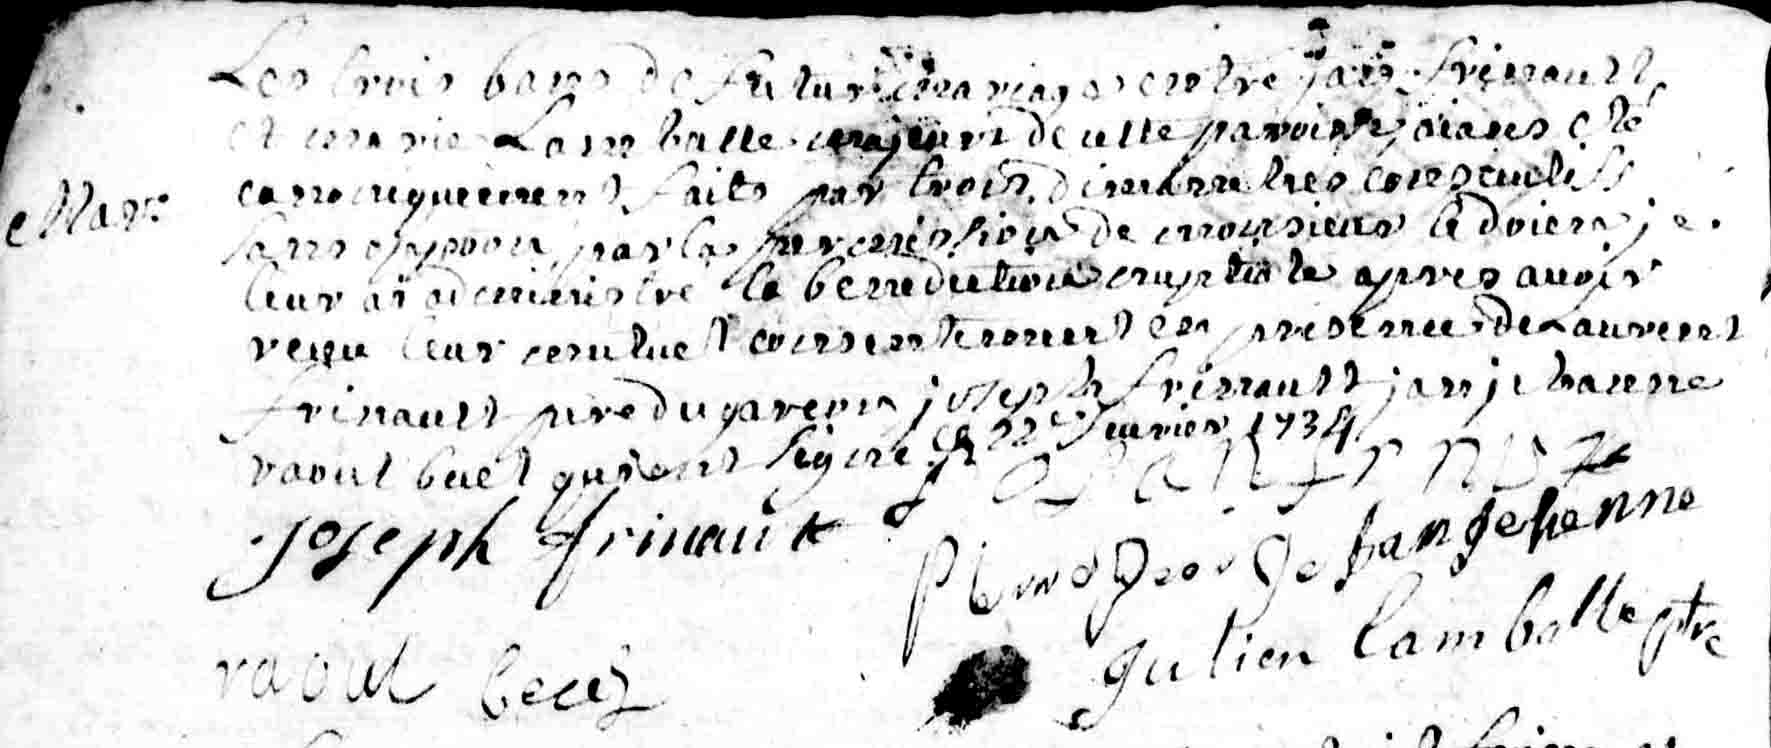 Les trois bans de futur mariage entre jan frinault
et marie Lamballe majeurs de cette paroisse aians eté
canoniquement faits par trois dimanches consecutifs
sans oppon par la permission de monsieur le doien je
leur aï administré la benediction nuptiale apres avoir
Mar:
receu leur mutuel consentement en presence de Laurent
frinault pere du garcon joseph frinault jan jehanne
raoul buet qui ont signe ce 22e fevrier 1734
joseph frinault
jan jehenne
raoul
julien lamballe ptre